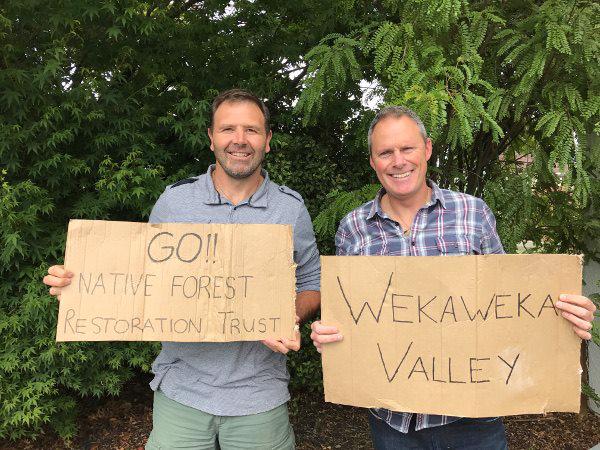 GO!!
NATIVE FOREST
RESTORATION TRUST
WEKAWEKA
VALLEY